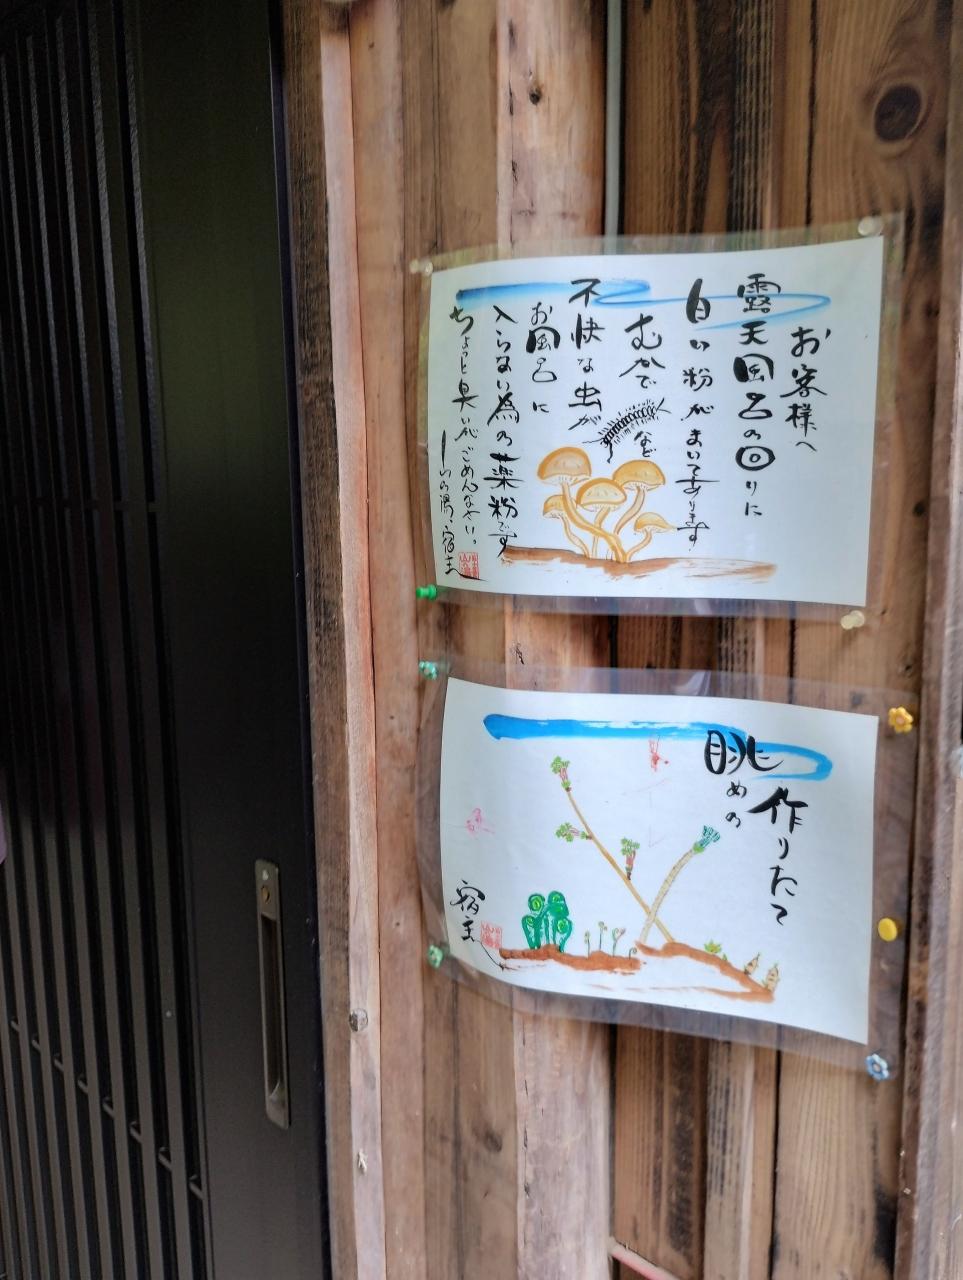 お客様へ
露天風呂の回りに
白い粉がまいてあります
むかで など
不快な虫が
お風呂に
入らない為の薬粉です
ちょっと臭いがごめんなさい。
しいの湯、宿主
作りたて
眺めの
宿主